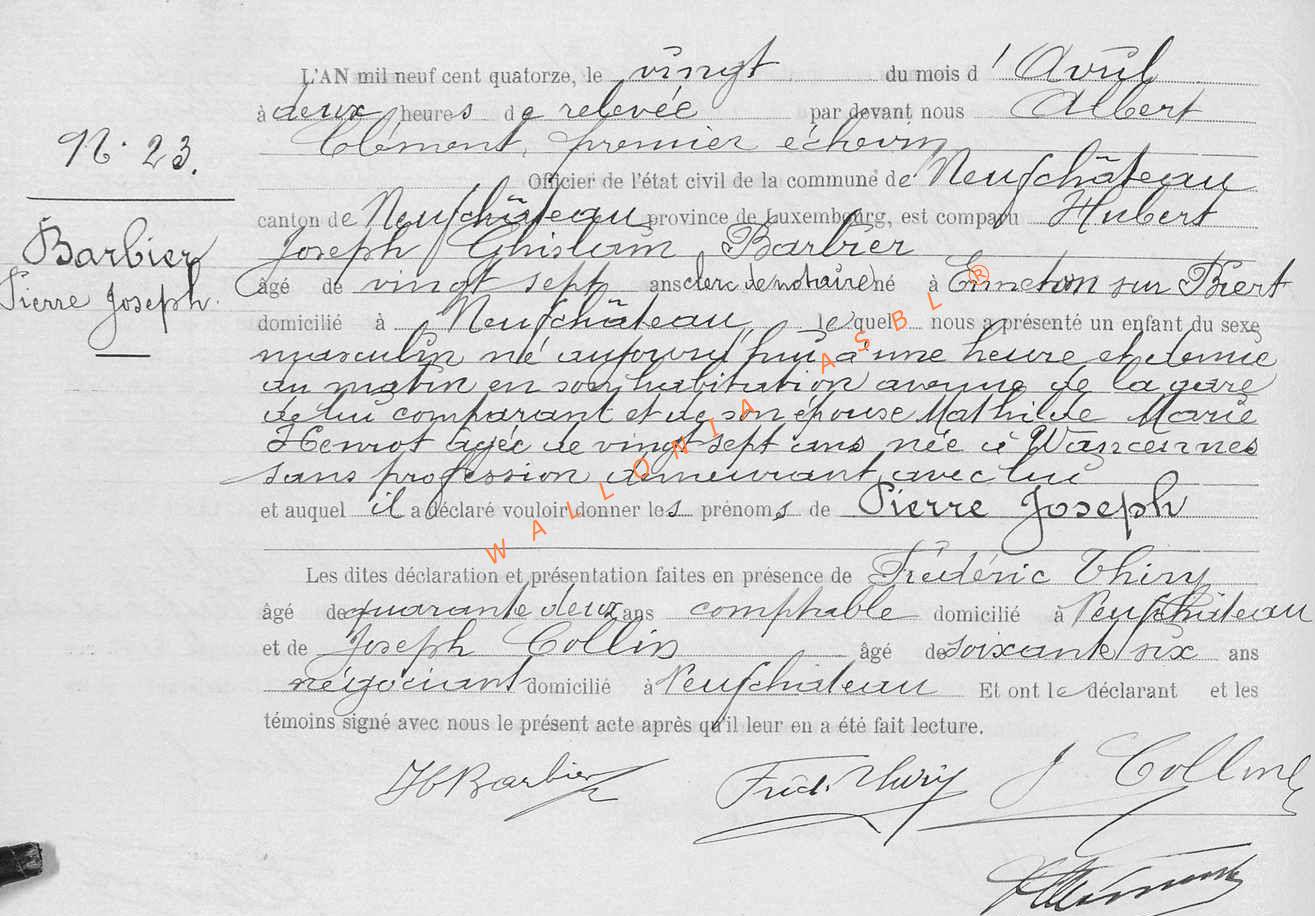 L'AN mil neuf cent quatorze, le vingt du mois d'Avril
à deux heures de relevée par devant nous Albert
Clément, premier échevin
N. 23.
Officier de l'état civil de la commune de Neufchâteau
canton de Neufchâteau province de Luxembourg, est comparu Hubert
Joseph Ghislain Barbier
Barbier
Pierre Joseph.
âgé de vingt sept ans clerc de notaire né à Ermeton sur Biert
domicilié à Neufchâteau, lequel nous a présenté un enfant du sexe
masculin né aujourd'hui à une heure et demie
du matin en son habitation avenue de la gare
de lui comparant et de son épouse Mathilde Marie
Henrot âgée de vingt sept ans née à Wancennes
sans profession demeurant avec lui
et auquel il a déclaré vouloir donner les prénoms de Pierre Joseph
Les dites déclaration et présentation faites en présence de Frédéric Thiry
âgé de quarante deux ans comptable domicilié à Neufchâteau
et de Joseph Collin âgé de soixante six ans
négociant domicilié à Neufchâteau Et ont le déclarant et les
témoins signé avec nous le présent acte après qu'il leur en a été fait lecture.
H Barbier Fréd. Thiry J Collin
WALLONIA ASBL ®